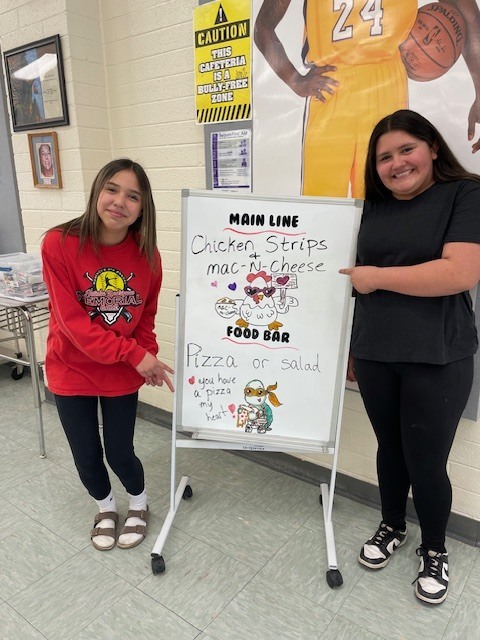 CAUTION
THIS
CAFETERIA
IS A
BULLY-FREE
ZONE
24
SPALDING
MEMORIAL
MAIN LINE
Chicken Strips
+
mac-N-Cheese
FOOD BAR
Pizza or salad
you have
a pizza
my
heart